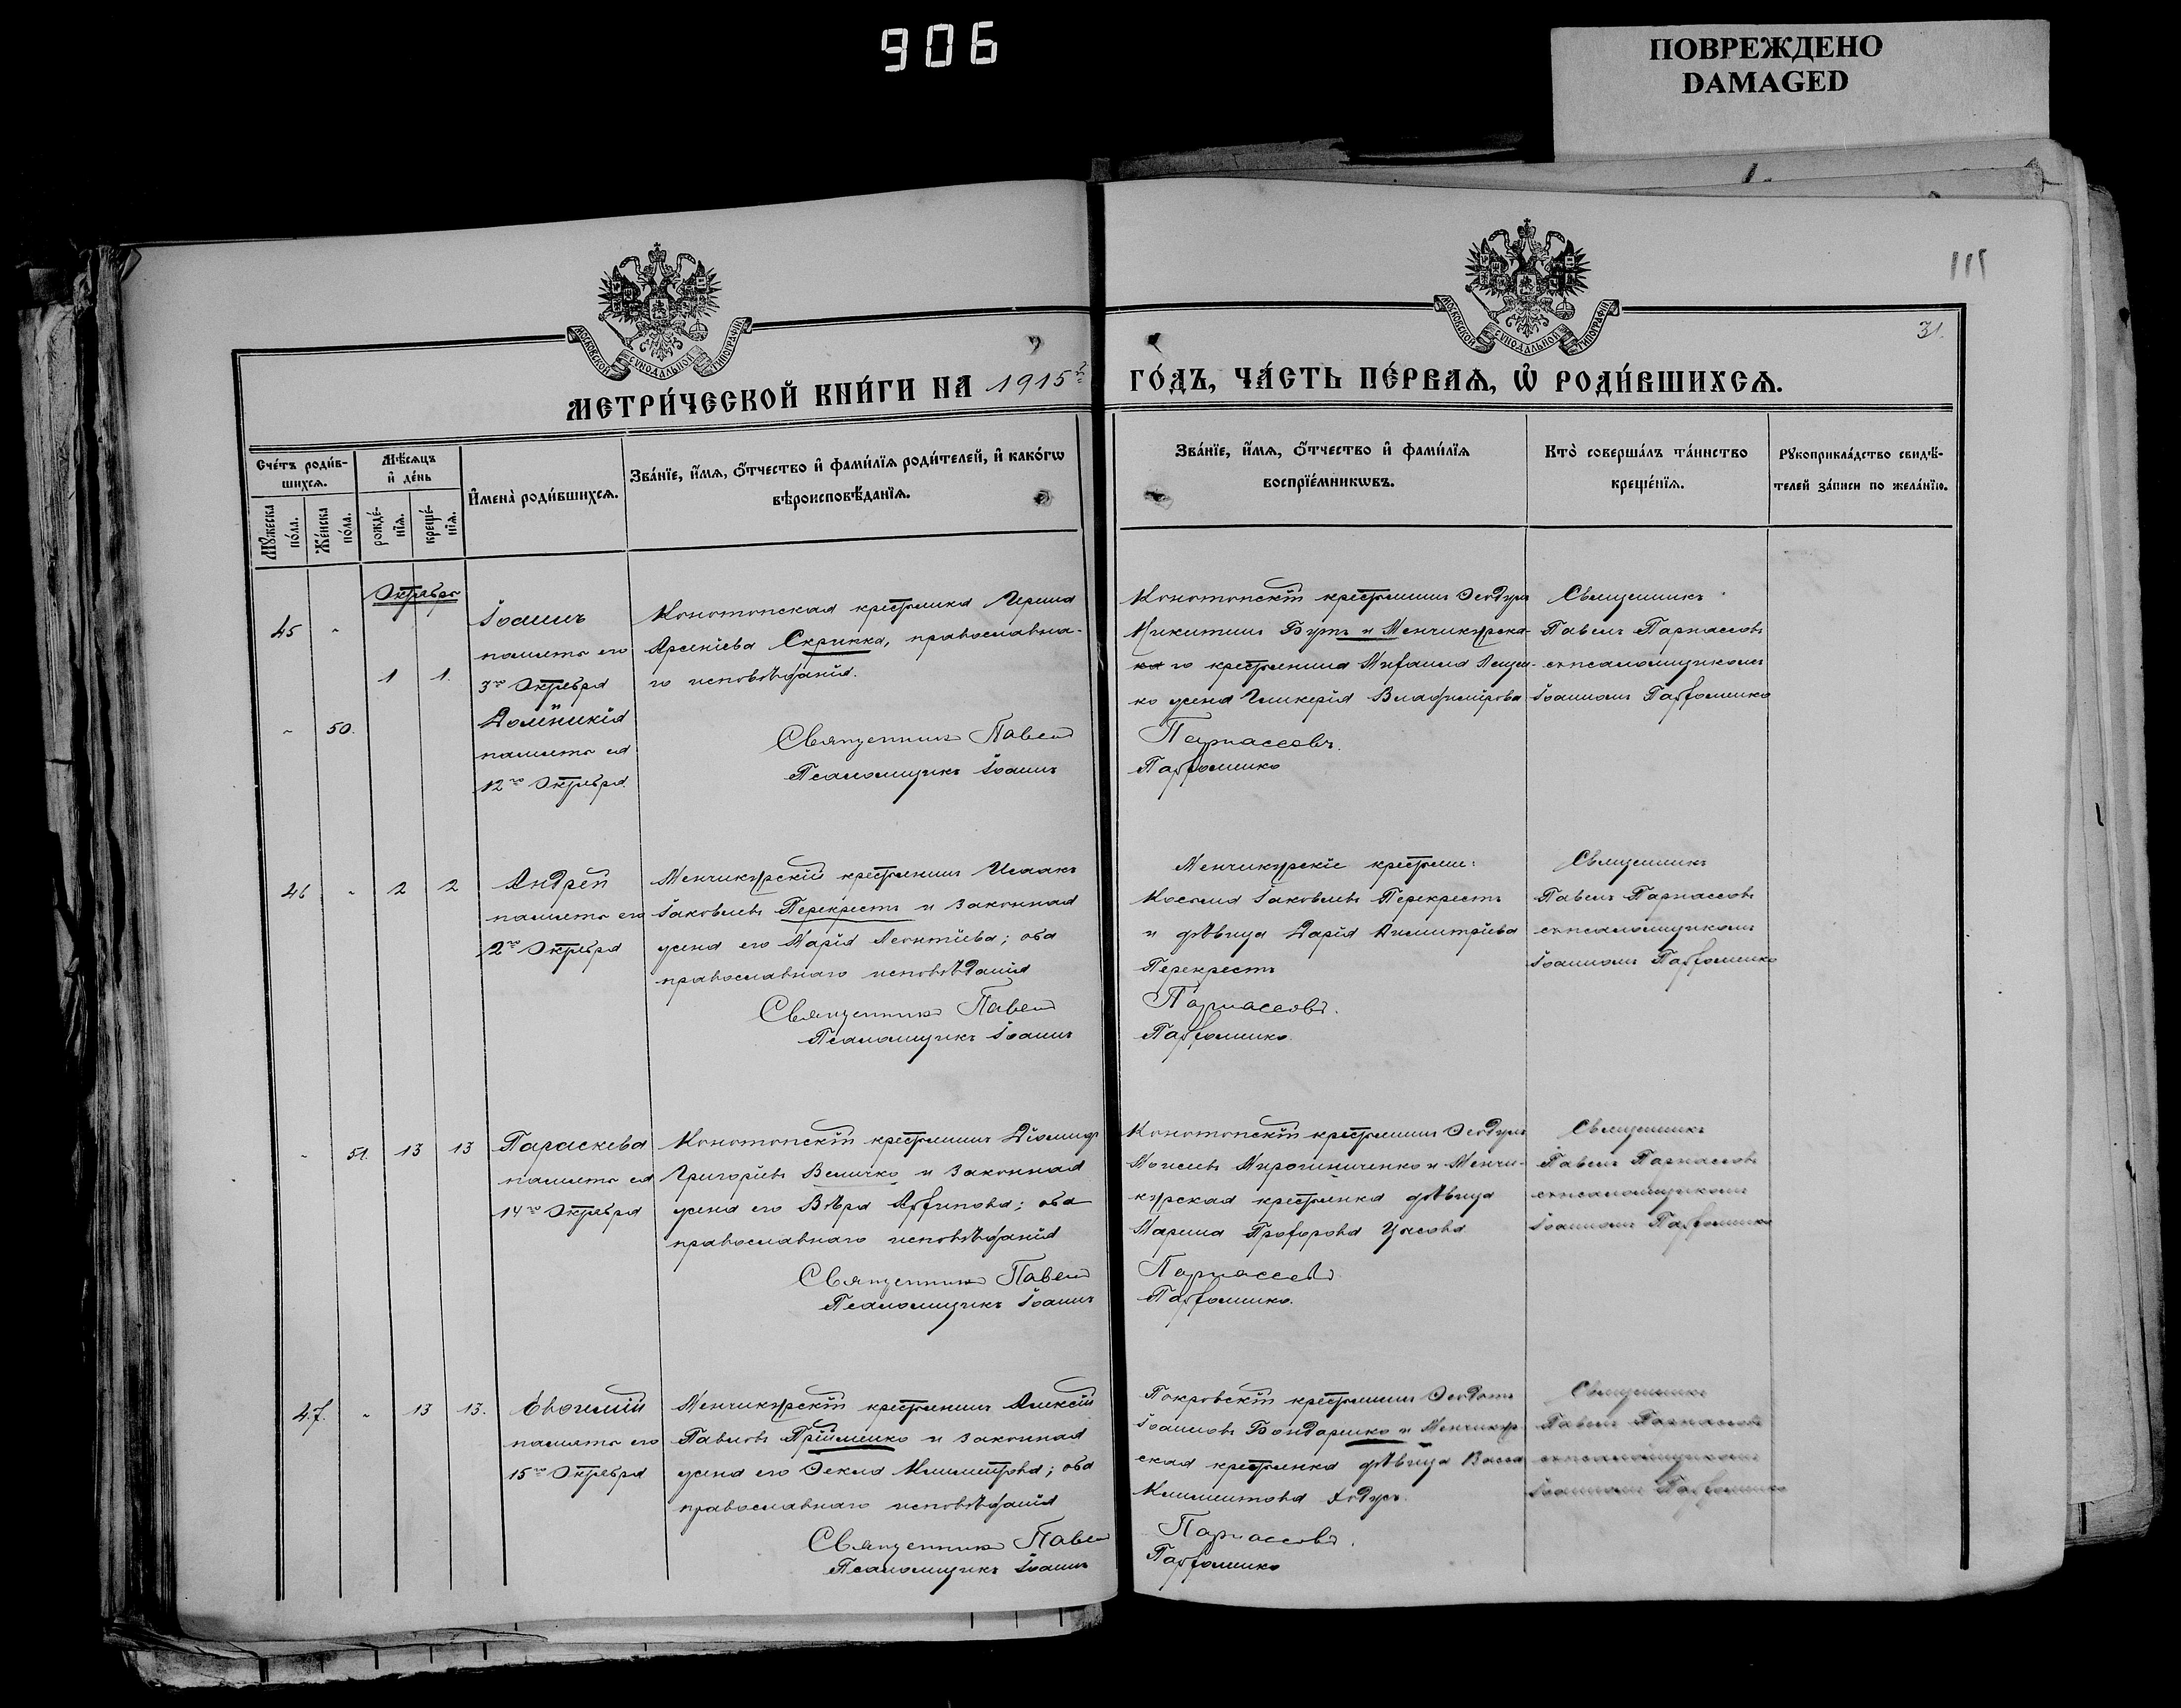 906
ПОВРЕЖДЕНО
DAMAGED
115
31.
МОСКОВСКОЙ СѴНОДАЛЬНОЙ ТИПОГРАФІИ
МОСКОВСКОЙ СѴНОДАЛЬНОЙ ТИПОГРАФІИ
МЕТРИ́ЧЕСКОЙ КНИ́ГИ НА 1915 й
ГО́ДЪ, ЧА́СТЬ ПЕ́РВАѦ, Ѿ РОДИ́ВШИХСѦ.
Сче́тъ роди́в-
шихсѧ.
Мꙋ́жеска по́ла.
Же́нска по́ла.
Мѣ́сѧцъ
и҆ де́нь
рожде́-нїѧ.
креще́-нїѧ.
И҆мена̀ роди́вшихсѧ.
Зва́нїе, и҆́мѧ, ѻ҆́тчество и҆ фами́лїѧ роди́телей, и҆ како́гѡ
вѣроисповѣ́данїѧ.
Зва́нїе, и҆́мѧ, ѻ҆́тчество и҆ фами́лїѧ
воспрїе́мникѡвъ.
Кто̀ соверша́лъ та́инство
креще́нїѧ.
Рꙋкоприкла́дство свидѣ́-
телей за́писи по жела́нїю.
Октября
45 " 1 1.
Іоаннъ
память его
3го Октября
" 50.
Домникія
память ея
12го Октября.
Конотопская крестьянка Ирина
Арсеніева Скрипка, православна-
го исповѣданія.
Священникъ Павелъ
Псаломщикъ Іоаннъ
Конотопскій крестьянинъ Ѳеодулъ
Никитинъ Бутъ и Менчикурска-
го крестьянина Михаила Лещен-
ко жена Гликерія Владимірова
Парнассовъ.
Парфоменко
Священникъ
Павелъ Парнассовъ
съ псаломщикомъ
Іоанномъ Парфоменко
46 " 2 2
Андрей
память его
2го Октября
Менчикурскій крестьянинъ Исаакъ
Іаковлевъ Перекрестъ и законная
жена его Марія Леонтіева; оба
православнаго исповѣданія
Священникъ Павелъ
Псаломщикъ Іоаннъ
Менчикурскіе крестьяне:
Косьма Іаковлевъ Перекрестъ
и дѣвица Дарія Димитріева
Перекрестъ
Парнассовъ.
Парфоменко.
Священникъ
Павелъ Парнассовъ
съ псаломщикомъ
Іоанномъ Парфоменко
" 51. 13 13
Параскева
память ея
14го Октября
Конотопскій крестьянинъ Діомидъ
Григорьевъ Величко и законная
жена его Вѣра Арфинова; оба
православнаго исповѣданія
Священникъ Павелъ
Псаломщикъ Іоаннъ
Конотопскій крестьянинъ Ѳеодулъ
Моисеевъ Мирошниченко и Менчи-
курская крестьянка дѣвица
Марина Прохорова
Парнассовъ
Парфоменко.
Священникъ
Павелъ Парнассовъ
съ псаломщикомъ
Іоанномъ Парфоменко
47. " 13 13.
Евѳимій
память его
15го Октября
Менчикурскій крестьянинъ Алексій
Павловъ Прійменко и законная
жена его Ѳекла Климентова; оба
православнаго исповѣданія
Священникъ Павелъ
Псаломщикъ Іоаннъ
Покровскій крестьянинъ Ѳеодотъ
Іоанновъ Бондаренко и Менчикур-
ская крестьянка дѣвица Васса
Климентова Ходусъ.
Парнассовъ.
Парфоменко
Священникъ
Павелъ Парнассовъ
съ псаломщикомъ
Іоанномъ Парфоменко